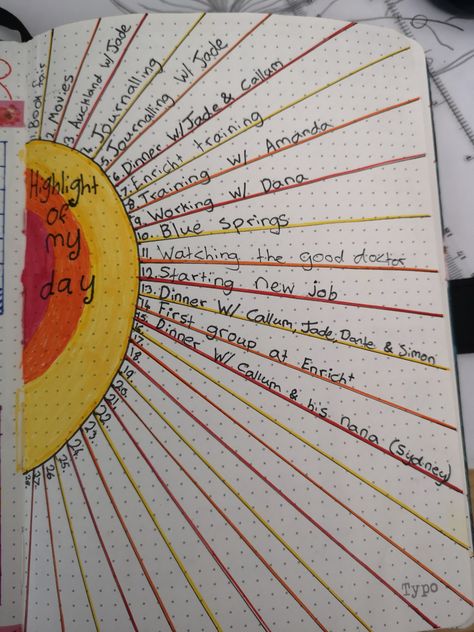 Highlight
of
my
day
book fair
2. Movies
3. Auckland w/Jade
4. Journalling
5. Journalling w/ Jade
6. Dinner w/Jade & Callum
7. Enricht training
8. Training w/ Amanda
9. Working w/ Dana
10. Blue Springs
11. Watching the good doctor
12. Starting new job
13. Dinner w/ Callum, Jade, Dante & Simon
14. First group at Enricht
15. Dinner w/ Callum & his nana (Sydney)
16.
17.
18.
19.
20.
21.
22.
23.
24.
25.
26.
27.
28.
Typo